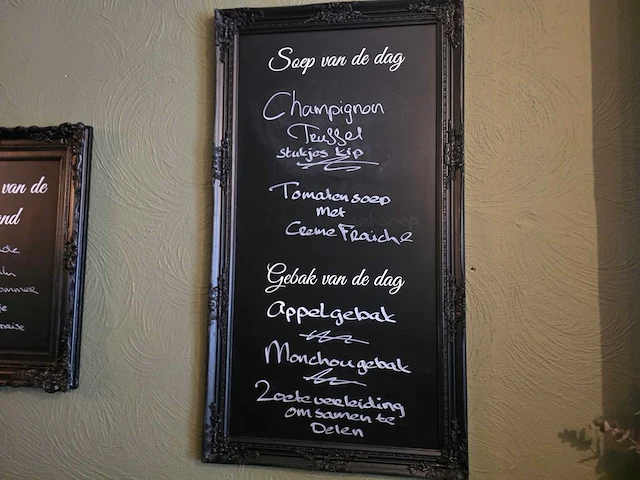 van de
Soep van de dag
Champignon
Truffel
stukjes kip
Tomatensoep
met
Creme Fraiche
Gebak van de dag
Appelgebak
Monchougebak
Zoete verleiding
om samen te
Delen